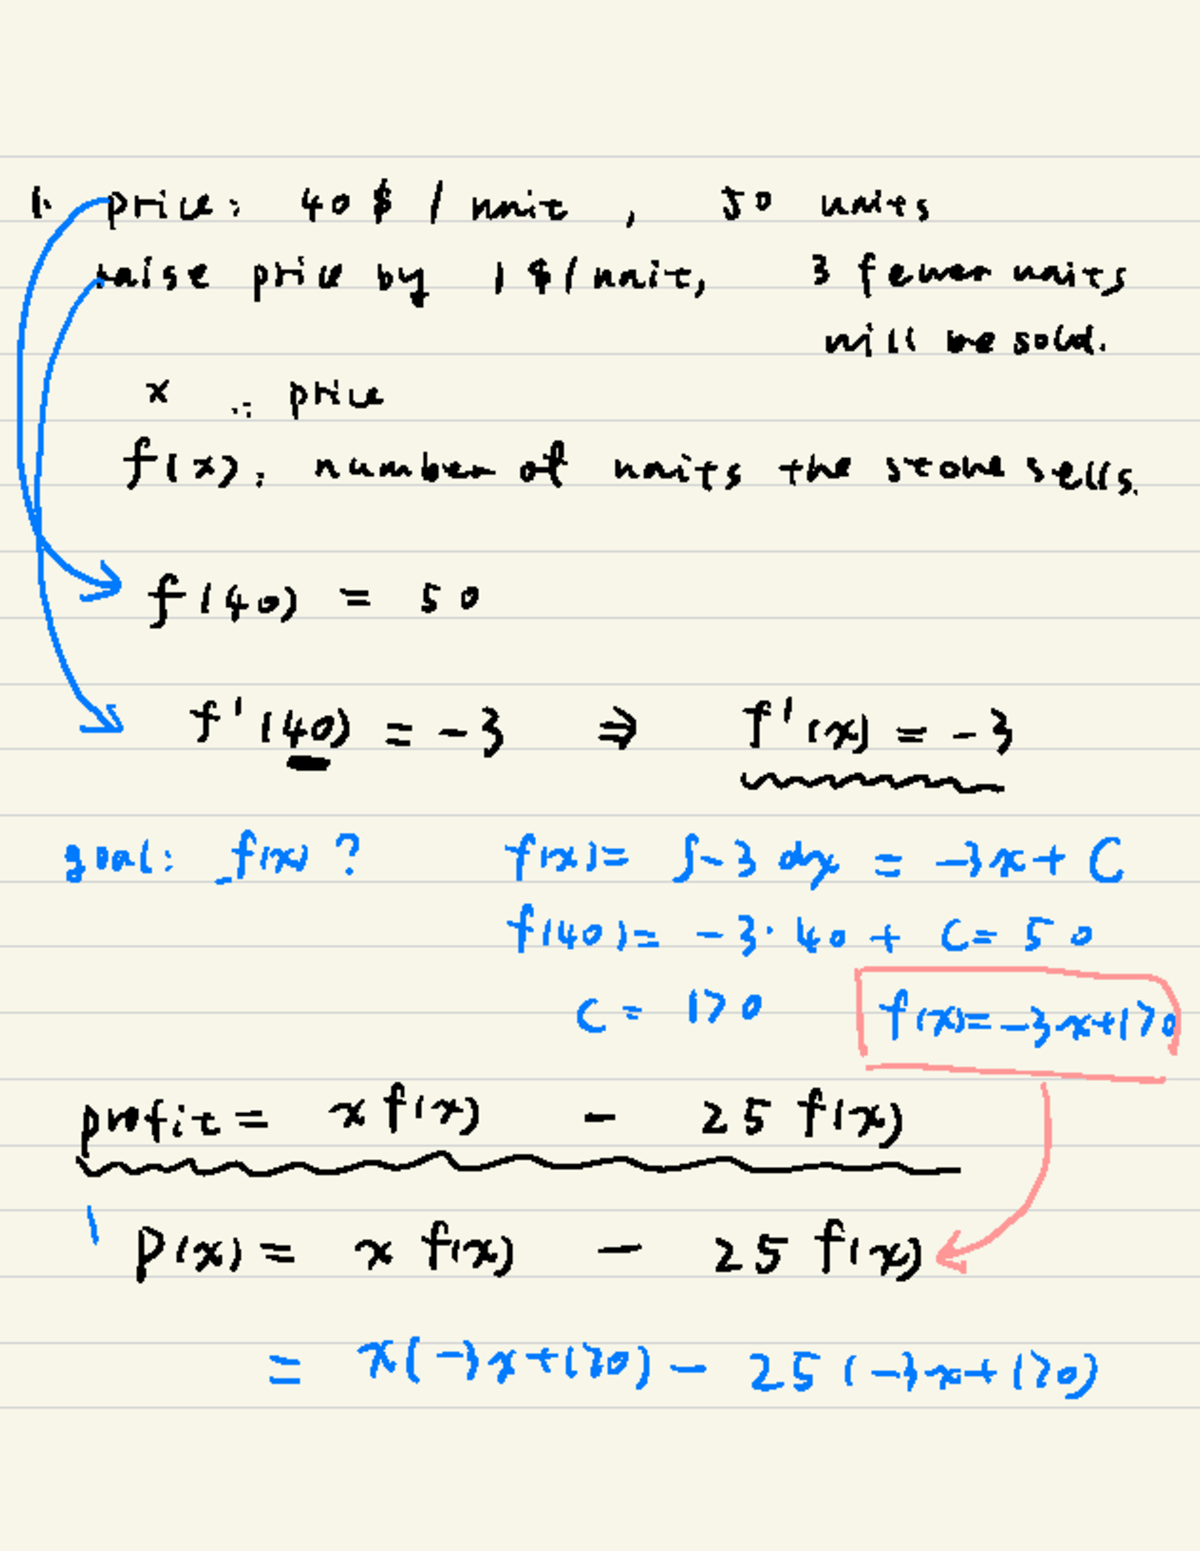 1. price: 40 $ / unit , 50 units
raise price by 1 $ / unit, 3 fewer units
will be sold.
x : price
f(x): number of units the store sells.
f(40) = 50
f'(40) = -3 ⇒ f'(x) = -3
goal: f(x) ? f(x) = ∫-3 dx = -3x + C
f(40) = -3· 40 + C = 50
C = 170 f(x) = -3x+170
profit = x f(x) - 25 f(x)
P(x) = x f(x) - 25 f(x)
= x(-3x+170) - 25 (-3x+170)